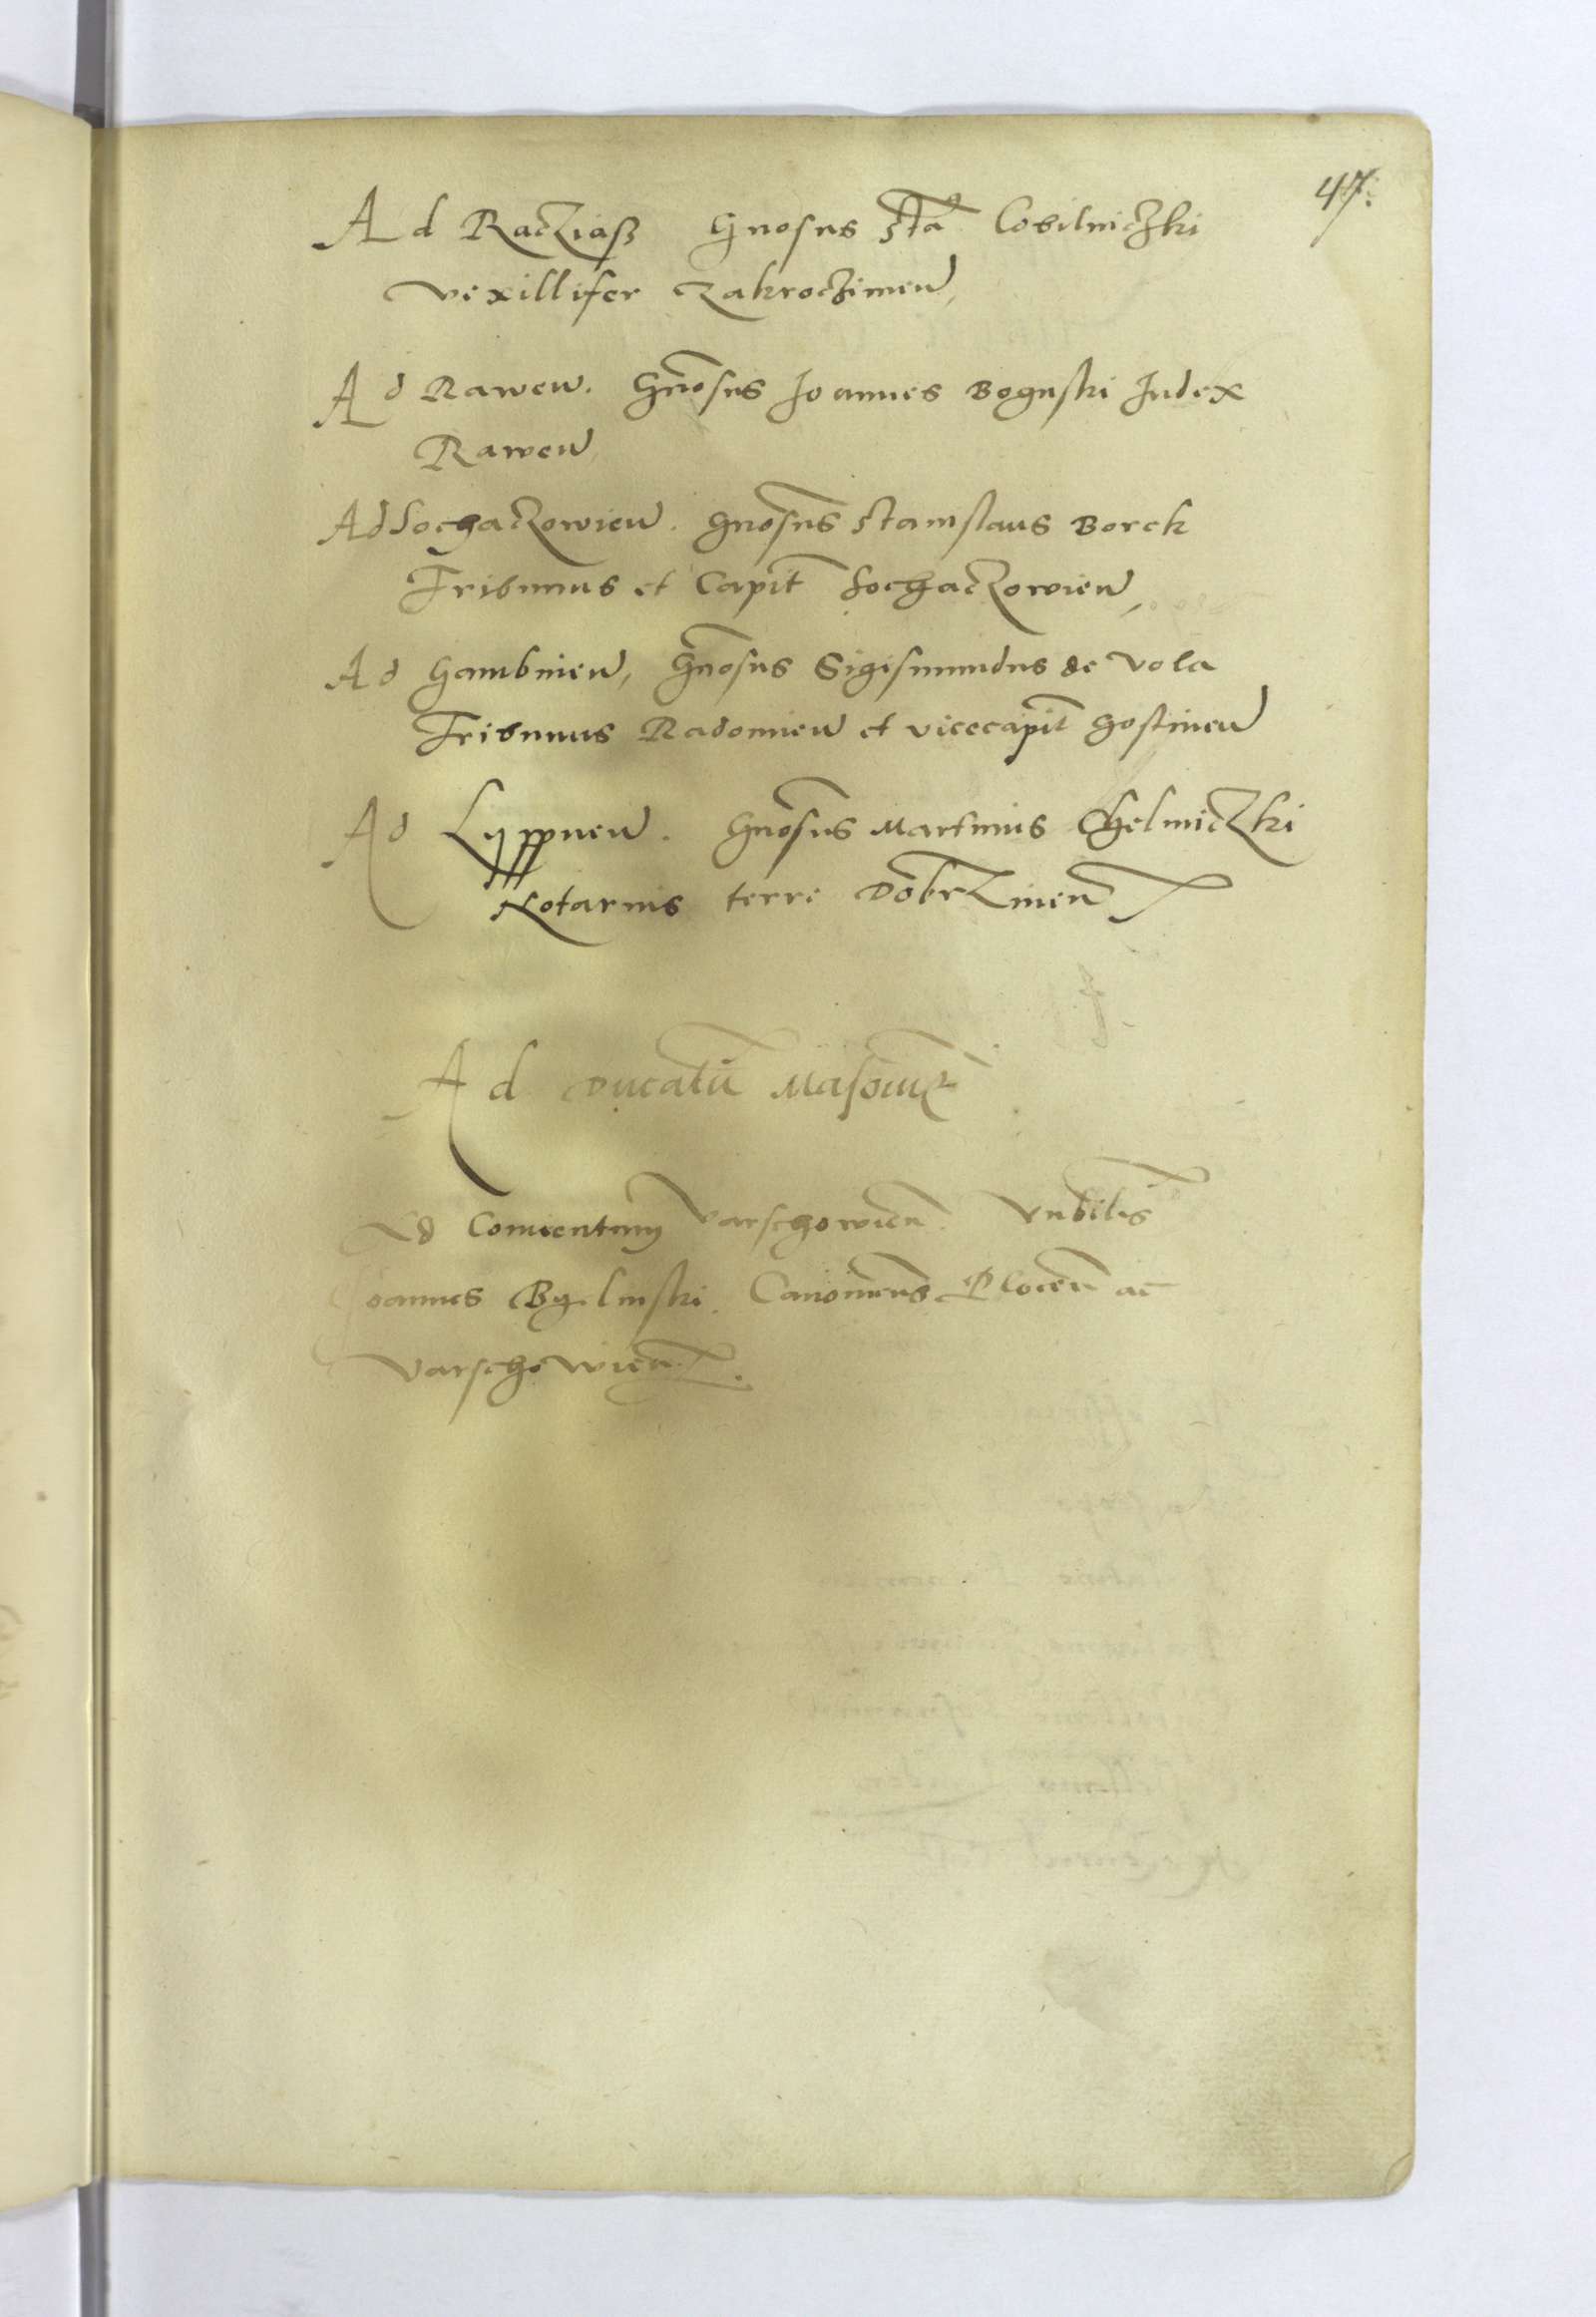 47.
Ad Racziasz Gnosus Sta Cobilniczki
vexillifer Zakroczimen
Ad Rawen. Gnosus Joannes Boguski Judex
Rawen
Ad Sochaczowien. Gnosus Stanislaus Borek
Tribunus et Capit Sochaczowien
Ad Gambinen, Gnosus Sigismundus de Vola
Tribunus Radomien et vicecapit Gostinen
Ad Lyppnen. Gnosus Martinus Chelmiczki
Notarius terre Dobrzinen
Ad Ducatu Masouie
Ad Conuentum Varschowien. Vnbilis
Joannes Byelinski Canonicus Plocen ac
Varschowien.